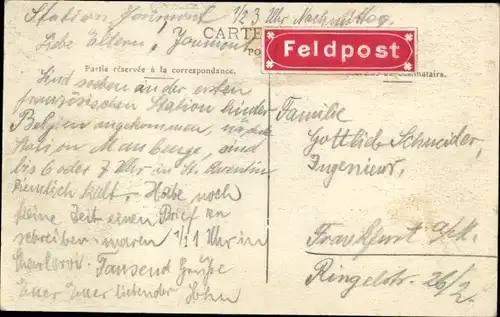 Station Jeumont 1/2 3 Uhr Nachmittag.
CARTE
Feldpost
Liebe Eltern, Jeumont
Partie réservée à la correspondance.
Sind schon an der ersten
französischen Station hinter
Belgien angekommen, nächste
Station Maubeuge, sind
bis 6 oder 7 Uhr in St. Quentin
Ziemlich kalt. Habe noch
keine Zeit einen Brief zu
schreiben waren 1/2 1 Uhr in
Charleroi. Tausend Grüße
Euer Euer liebender Sohn
Familie
Gottlieb Schneider,
Ingenieur,
Frankfurt a/M.
Ringelstr. 26/2.